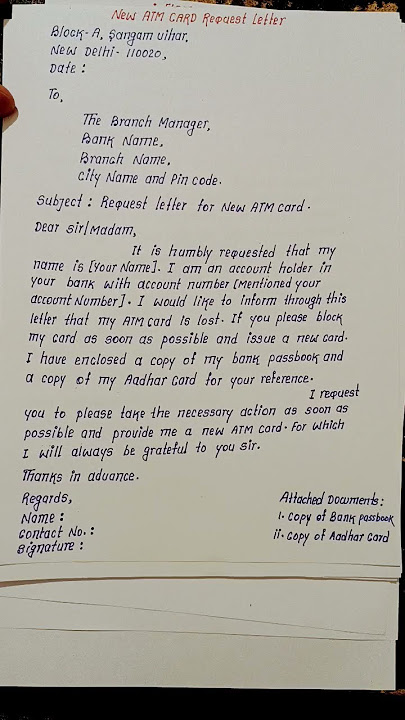 New ATM CARD Request Letter
Block-A, Sangam vihar,
New Delhi- 110020,
Date :
To,
The Branch Manager,
Bank Name,
Branch Name,
City Name and Pin code.
Subject : Request letter for New ATM card.
Dear Sir/Madam,
It is humbly requested that my
name is [Your Name]. I am an account holder in
your bank with account number [Mentioned your
account Number]. I would like to inform through this
letter that my ATM card is lost. If you please block
my card as soon as possible and issue a new card.
I have enclosed a copy of my bank passbook and
a copy of my Aadhar Card for your reference.
I request
you to please take the necessary action as soon as
possible and provide me a new ATM Card. For which
I will always be grateful to you sir.
Thanks in advance.
Regards,
Name :
Contact No. :
Signature :
Attached Documents:
i. Copy of Bank passbook
ii. Copy of Aadhar Card